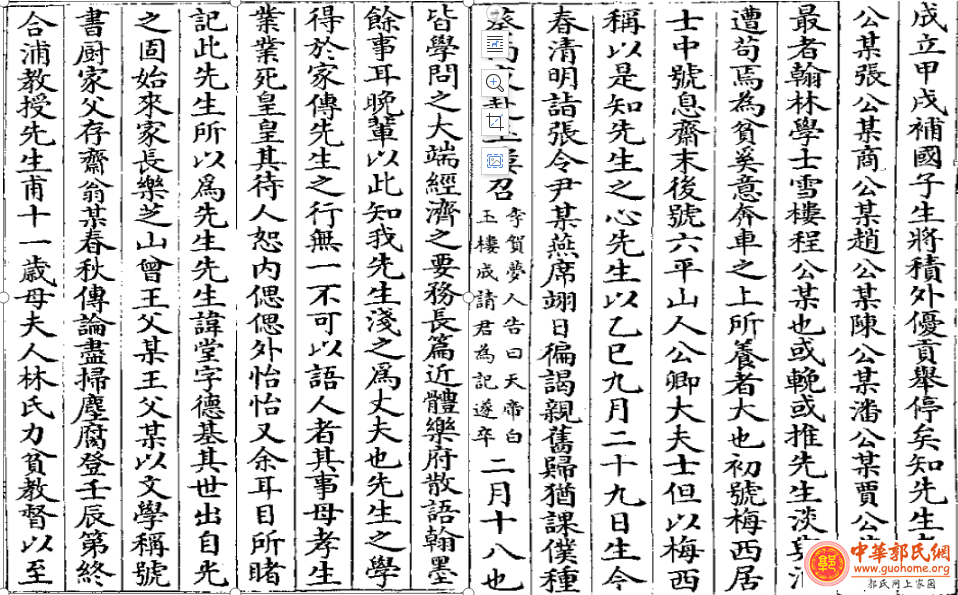 成立甲戌補國子生將積外優貢舉停矣知先生
公某張公某商公某趙公某陳公某潘公某賈公
最者翰林學士雪樓程公某也或輓或推先生淡
遭苟焉為貧奚意奔車之上所養者大也初號梅西居
士中號息齋末後號六平山人公卿大夫士但以梅西
稱以是知先生之心先生以乙巳九月二十九日生今
春清明詣張令尹某燕席翊日徧謁親舊歸猶課僕種
召李賀夢人告曰天帝白玉樓成請君為記遂卒二月十八也
皆學問之大端經濟之要務長篇近體樂府散語翰墨
餘事耳晚輩以此知我先生淺之爲丈夫也先生之學
得於家傳先生之行無一不可以語人者其事母孝生
業業死皇皇其待人恕内偲偲外怡怡又余耳目所睹
記此先生所以爲先生先生諱堂字德基其世出自光
之固始來家長樂芝山曾王父某王父某以文學稱號
書厨家父存齋翁某春秋傳論盡掃塵腐登壬辰第終
合浦教授先生甫十一歲母夫人林氏力貧教督以至
中華郭氏網
www.guohome.org
郭氏网上家园